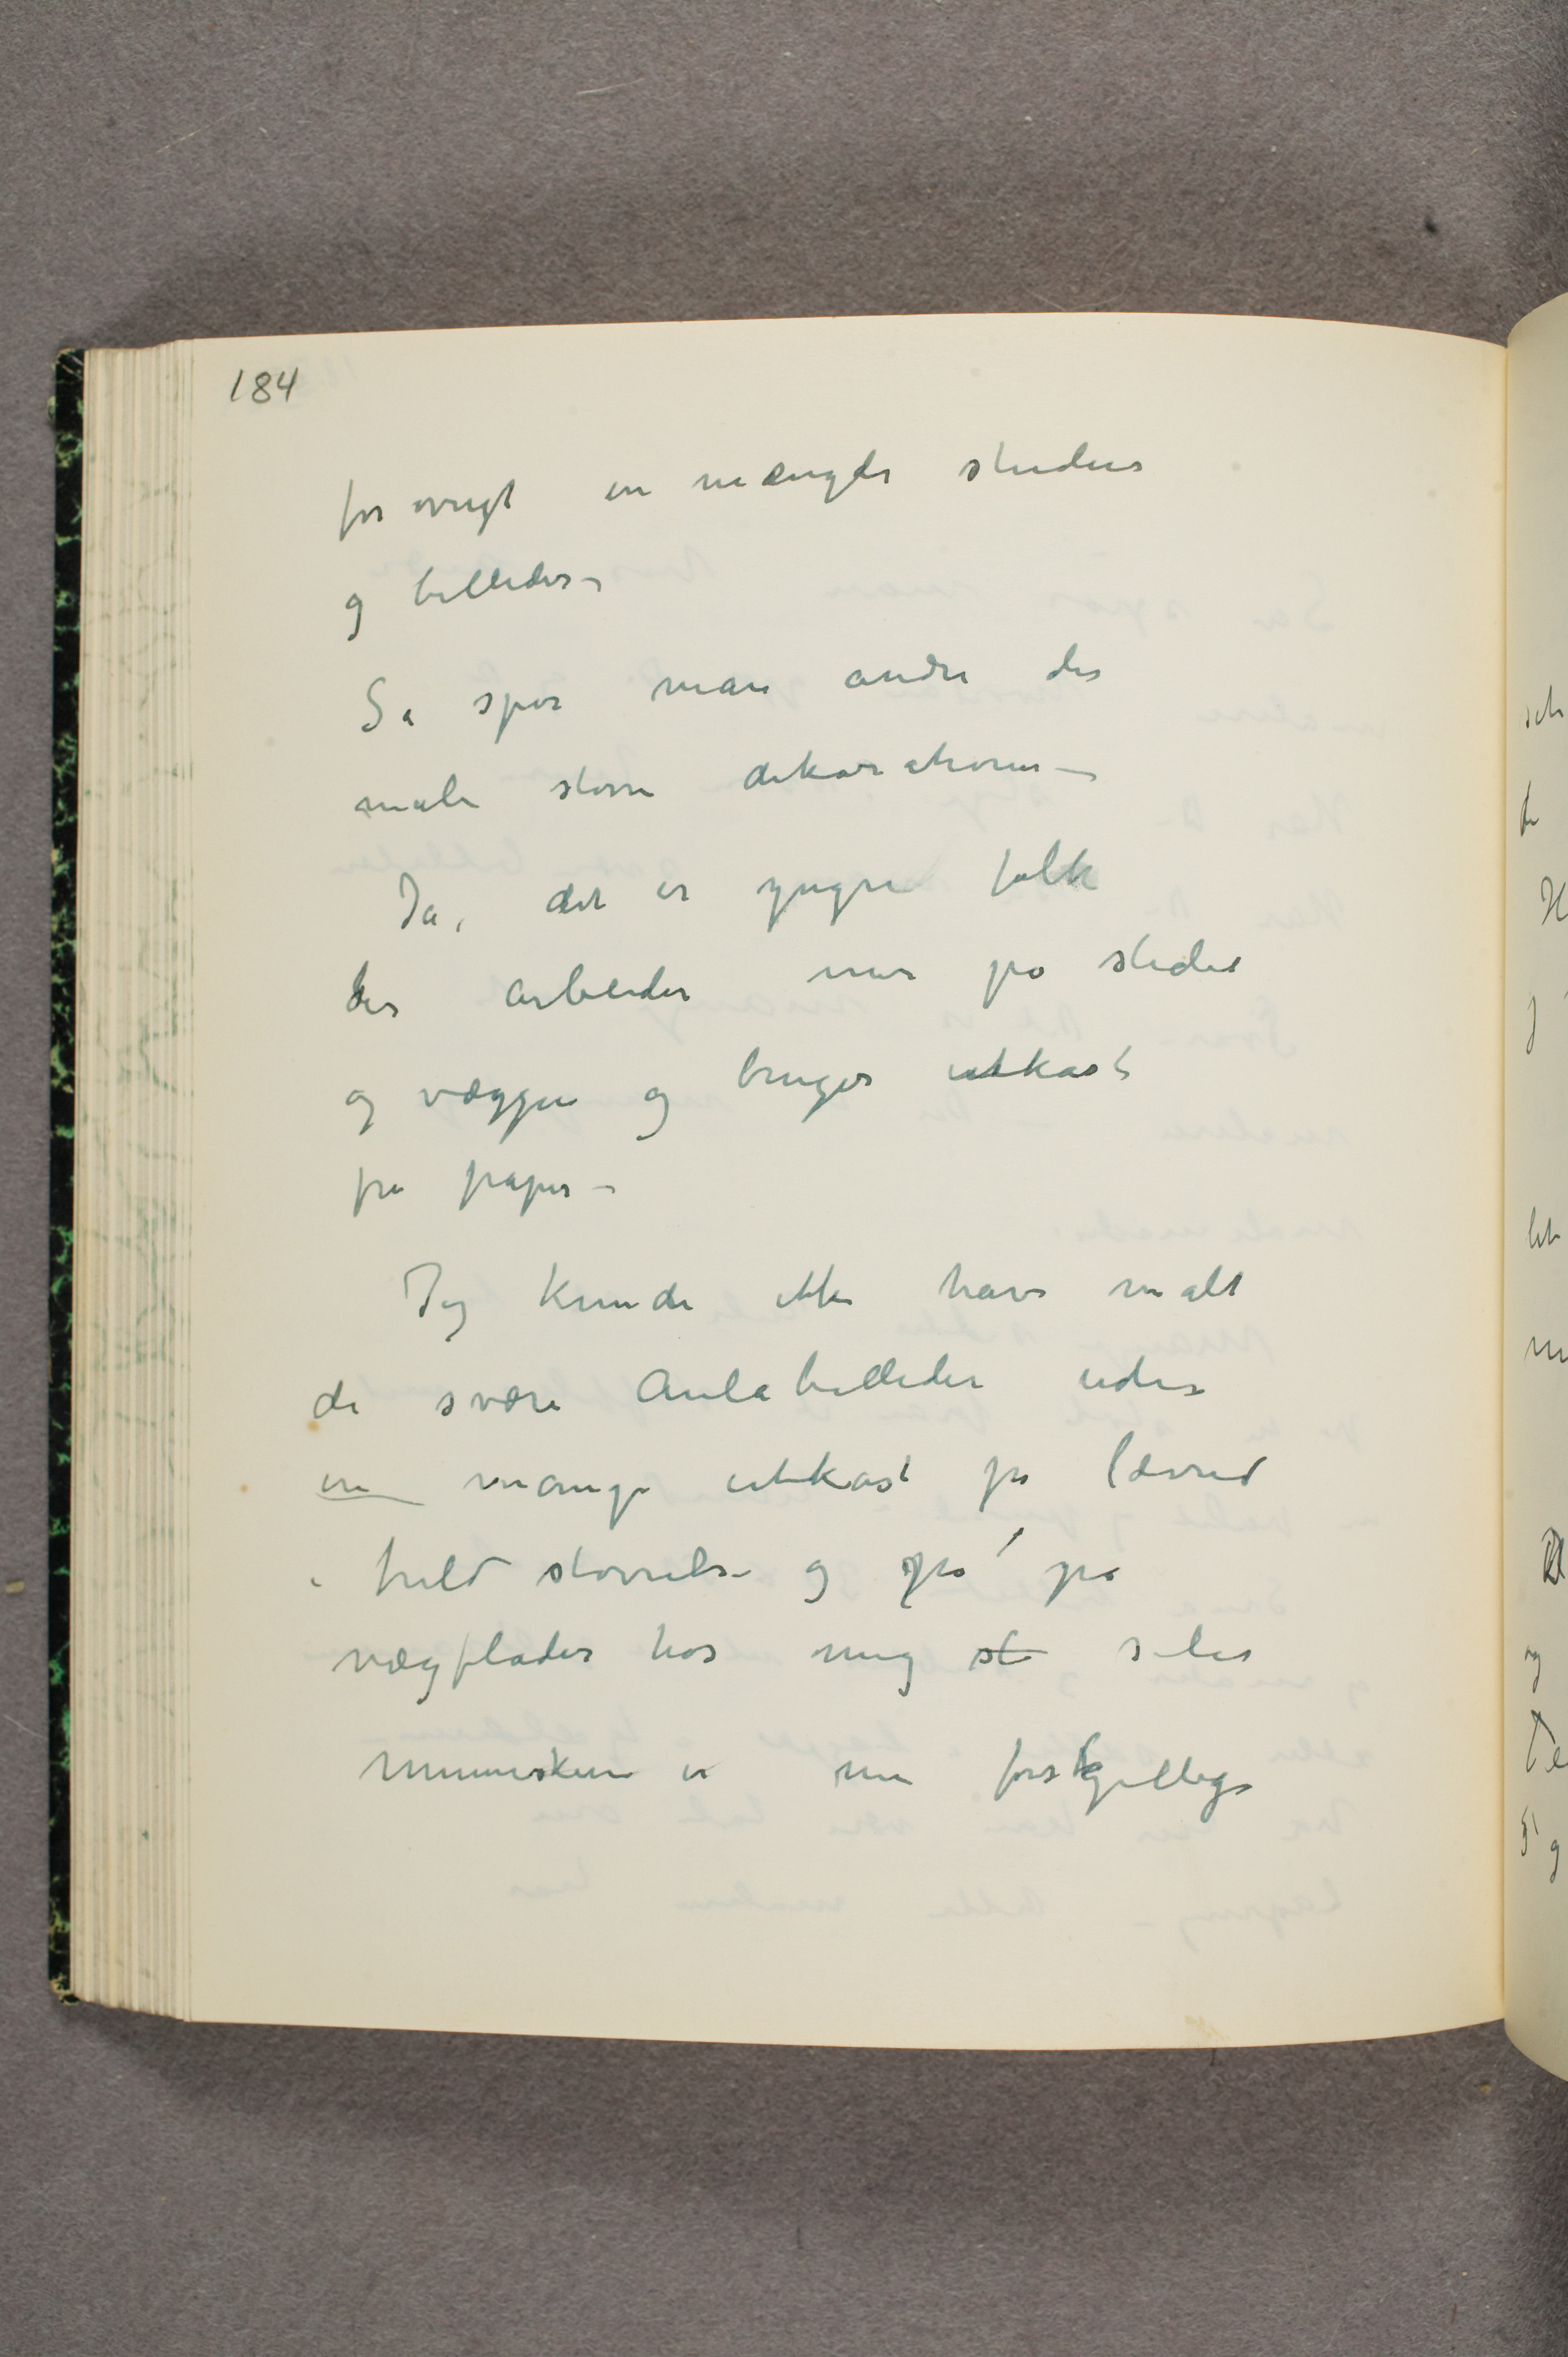 184
for øvrigt en mængde studier
og billeder –
Så spør man andre der
male større dekorationer –
Ja, det er yngre folk
der arbeider mer på stedet
og væggen og bruger utkast
fra papir –
Jeg kunde ikke have malt
de svære Aulabilleder uden
en mange utkast på lærred
i fuld størrelse og på på
vægflader hos mig st selv
Menneskene er nu forskjellige